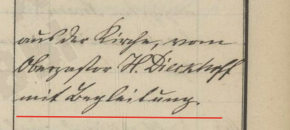 aus der Kirche, vom
Oberpastor H. Dierkhoff
mit Begleitung.